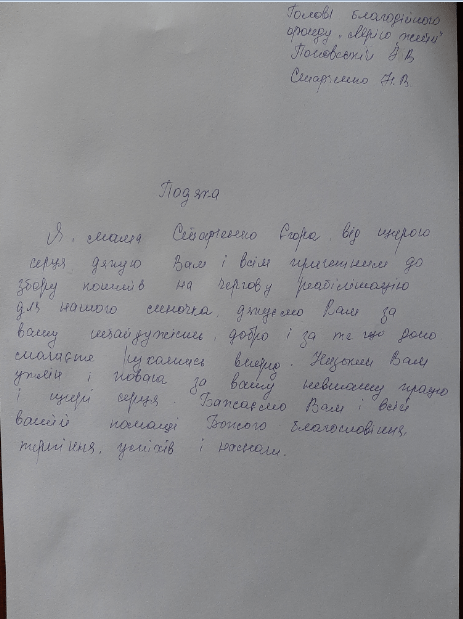 Голові благодійного
фонду „Мрію жити"
Полянській А. В.
Стаф'єєнко Н. В.
Подяка
Я, мама Єгора, від щирого
серця дякую Вам і всім причетним до
збору коштів на чергову реабілітацію
для нашого синочка. Дякуємо Вам за
вашу небайдужість, добро і за те що допо
магаєте рухатись вперед. Низький Вам
уклін і повага за вашу невпинну працю
і щирі серця. Бажаємо Вам і всій
вашій команді Божого благословіння,
терпіння, успіхів і наснаги.